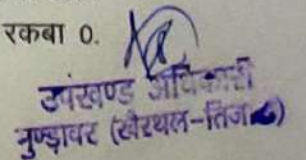 रकबा 0.
उपखण्ड अधिकारी
मुण्डावर (खैरथल-तिजारा)